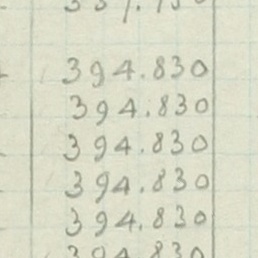 394.830
394.830
394.830
394.830
394.830
394.830